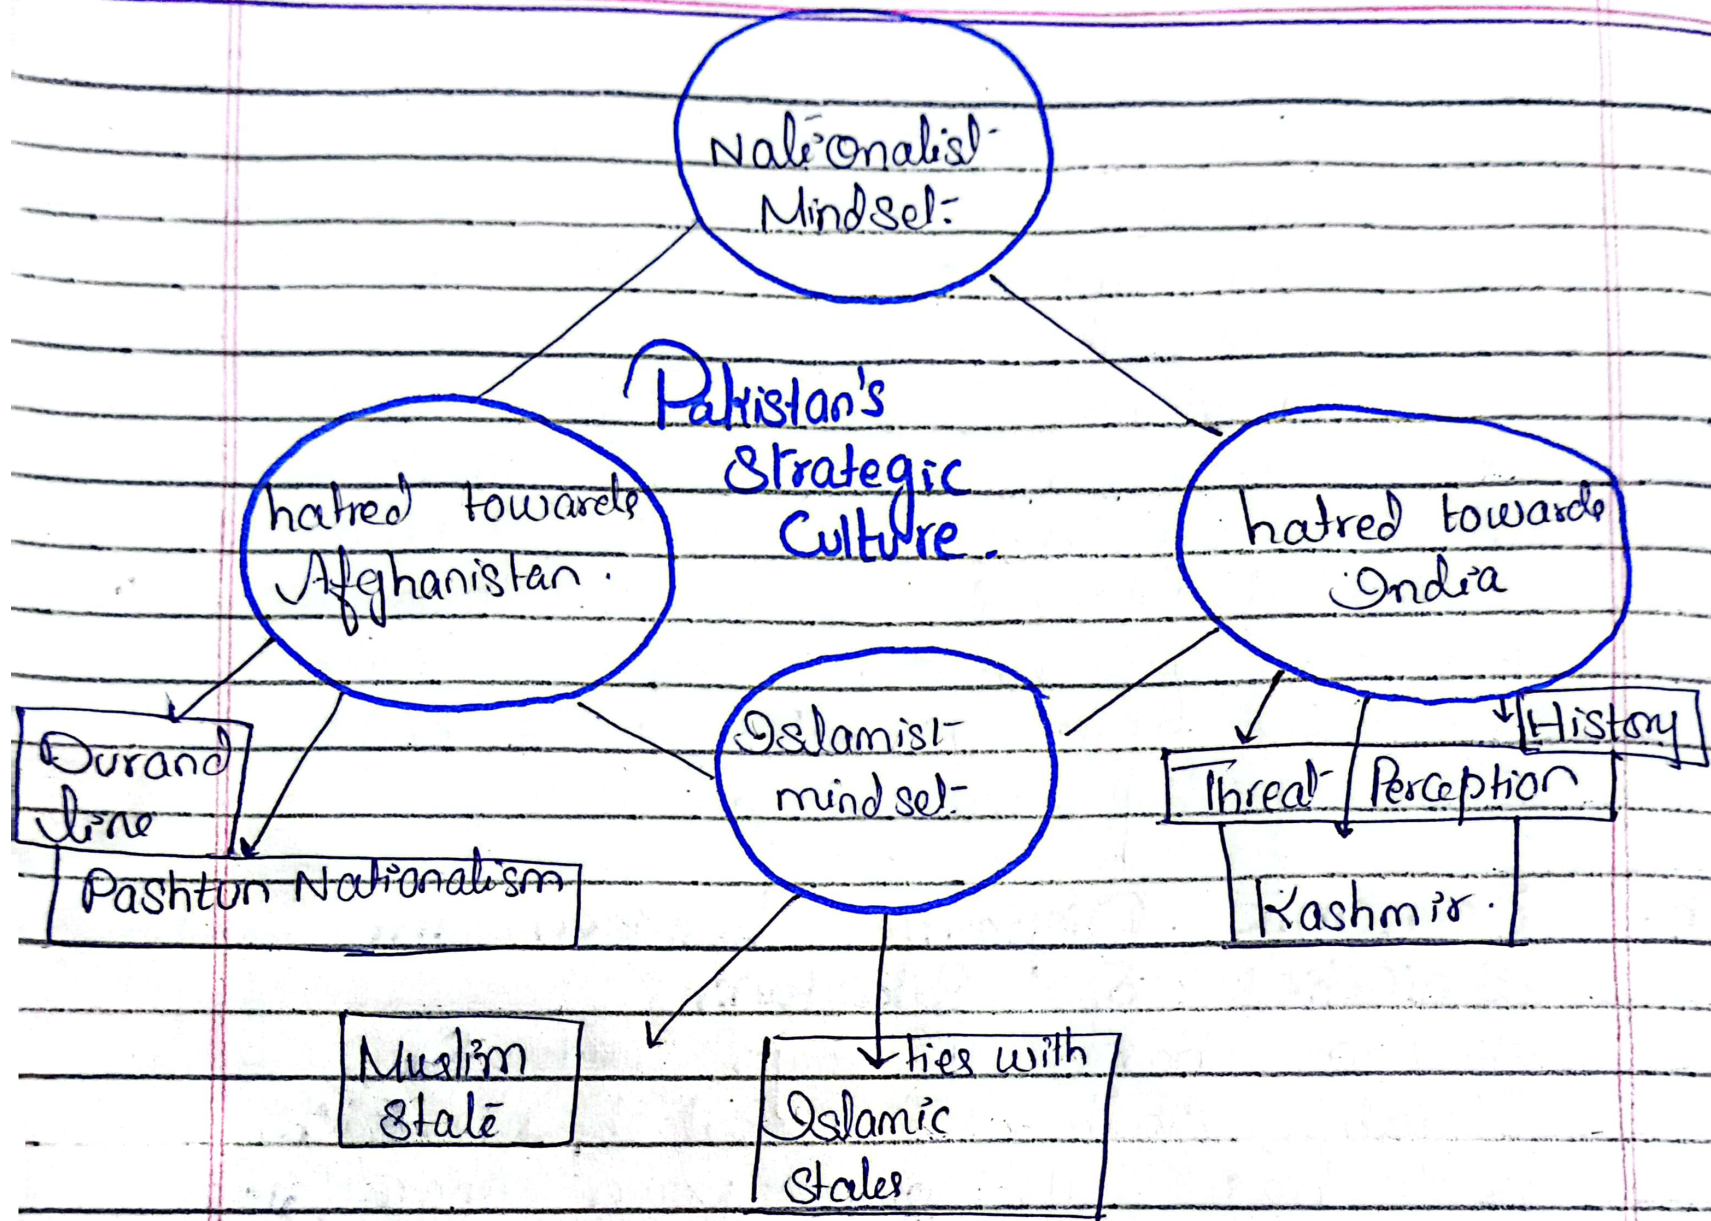 Nationalist
Mindset
Pakistan's
Strategic
Culture.
hatred towards
Afghanistan.
hatred towards
India
Durand
line
Pashtun Nationalism
Islamist
mindset
History
Threat Perception
Kashmir.
Muslim
State
ties with
Islamic
States